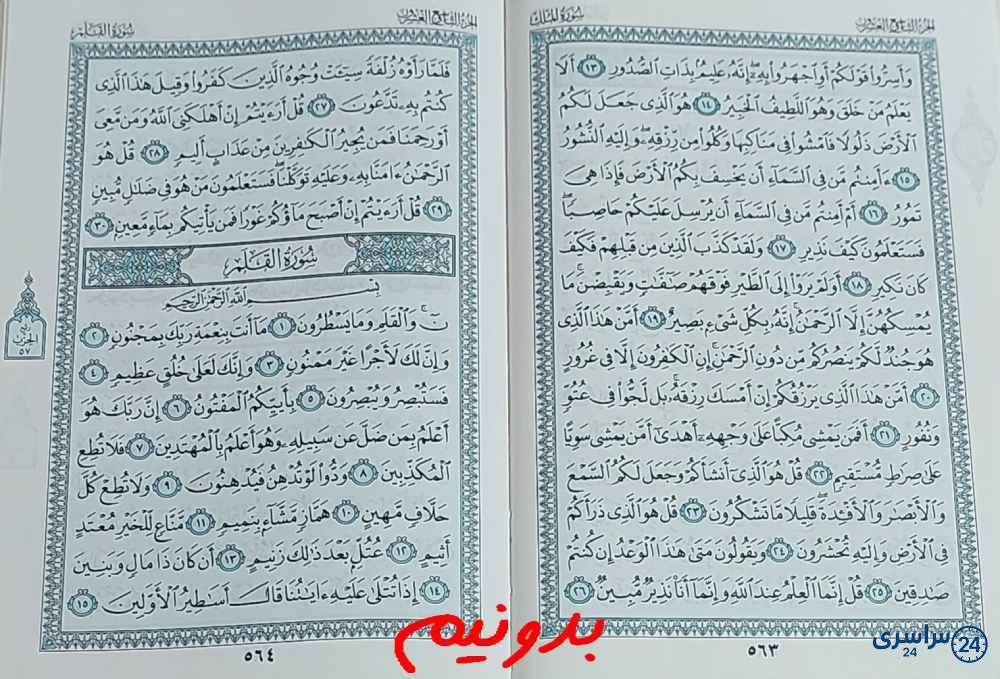 الجزء التاسع والعشرون
سورة الملك
وَأَسِرُّوا۟ قَوْلَكُمْ أَوِ ٱجْهَرُوا۟ بِهِۦٓ إِنَّهُۥ عَلِيمٌۢ بِذَاتِ ٱلصُّدُورِ ١٣ أَلَا
يَعْلَمُ مَنْ خَلَقَ وَهُوَ ٱللَّطِيفُ ٱلْخَبِيرُ ١٤ هُوَ ٱلَّذِى جَعَلَ لَكُمُ
ٱلْأَرْضَ ذَلُولًا فَٱمْشُوا۟ فِى مَنَاكِبِهَا وَكُلُوا۟ مِن رِّزْقِهِۦ وَإِلَيْهِ ٱلنُّشُورُ
١٥ ءَأَمِنتُم مَّن فِى ٱلسَّمَآءِ أَن يَخْسِفَ بِكُمُ ٱلْأَرْضَ فَإِذَا هِىَ
تَمُورُ ١٦ أَمْ أَمِنتُم مَّن فِى ٱلسَّمَآءِ أَن يُرْسِلَ عَلَيْكُمْ حَاصِبًا
فَسَتَعْلَمُونَ كَيْفَ نَذِيرِ ١٧ وَلَقَدْ كَذَّبَ ٱلَّذِينَ مِن قَبْلِهِمْ فَكَيْفَ
كَانَ نَكِيرِ ١٨ أَوَلَمْ يَرَوْا۟ إِلَى ٱلطَّيْرِ فَوْقَهُمْ صَٰٓفَّٰتٍ وَيَقْبِضْنَ مَا
يُمْسِكُهُنَّ إِلَّا ٱلرَّحْمَٰنُ إِنَّهُۥ بِكُلِّ شَىْءٍۭ بَصِيرٌ ١٩ أَمَّنْ هَٰذَا ٱلَّذِى
هُوَ جُندٌ لَّكُمْ يَنصُرُكُم مِّن دُونِ ٱلرَّحْمَٰنِ إِنِ ٱلْكَٰفِرُونَ إِلَّا فِى غُرُورٍ
٢٠ أَمَّنْ هَٰذَا ٱلَّذِى يَرْزُقُكُمْ إِنْ أَمْسَكَ رِزْقَهُۥ بَل لَّجُّوا۟ فِى عُتُوٍّ
وَنُفُورٍ ٢١ أَفَمَن يَمْشِى مُكِبًّا عَلَىٰ وَجْهِهِۦٓ أَهْدَىٰٓ أَمَّن يَمْشِى سَوِيًّا
عَلَىٰ صِرَٰطٍ مُّسْتَقِيمٍ ٢٢ قُلْ هُوَ ٱلَّذِىٓ أَنشَأَكُمْ وَجَعَلَ لَكُمُ ٱلسَّمْعَ
وَٱلْأَبْصَٰرَ وَٱلْأَفْـِٔدَةَ قَلِيلًا مَّا تَشْكُرُونَ ٢٣ قُلْ هُوَ ٱلَّذِى ذَرَأَكُمْ
فِى ٱلْأَرْضِ وَإِلَيْهِ تُحْشَرُونَ ٢٤ وَيَقُولُونَ مَتَىٰ هَٰذَا ٱلْوَعْدُ إِن كُنتُمْ
صَٰدِقِينَ ٢٥ قُلْ إِنَّمَا ٱلْعِلْمُ عِندَ ٱللَّهِ وَإِنَّمَآ أَنَا۠ نَذِيرٌ مُّبِينٌ ٢٦
٥٦٣
الجزء التاسع والعشرون
سورة القلم
فَلَمَّا رَأَوْهُ زُلْفَةً سِيٓـَٔتْ وُجُوهُ ٱلَّذِينَ كَفَرُوا۟ وَقِيلَ هَٰذَا ٱلَّذِى
كُنتُم بِهِۦ تَدَّعُونَ ٢٧ قُلْ أَرَءَيْتُمْ إِنْ أَهْلَكَنِىَ ٱللَّهُ وَمَن مَّعِىَ
أَوْ رَحِمَنَا فَمَن يُجِيرُ ٱلْكَٰفِرِينَ مِنْ عَذَابٍ أَلِيمٍ ٢٨ قُلْ هُوَ
ٱلرَّحْمَٰنُ ءَامَنَّا بِهِۦ وَعَلَيْهِ تَوَكَّلْنَا فَسَتَعْلَمُونَ مَنْ هُوَ فِى ضَلَٰلٍ مُّبِينٍ
٢٩ قُلْ أَرَءَيْتُمْ إِنْ أَصْبَحَ مَآؤُكُمْ غَوْرًا فَمَن يَأْتِيكُم بِمَآءٍ مَّعِينٍۭ ٣٠
سُورَةُ القَلَمِ
بِسْمِ ٱللَّهِ ٱلرَّحْمَٰنِ ٱلرَّحِيمِ
نٓ وَٱلْقَلَمِ وَمَا يَسْطُرُونَ ١ مَآ أَنتَ بِنِعْمَةِ رَبِّكَ بِمَجْنُونٍ ٢
وَإِنَّ لَكَ لَأَجْرًا غَيْرَ مَمْنُونٍ ٣ وَإِنَّكَ لَعَلَىٰ خُلُقٍ عَظِيمٍ ٤
فَسَتُبْصِرُ وَيُبْصِرُونَ ٥ بِأَييِّكُمُ ٱلْمَفْتُونُ ٦ إِنَّ رَبَّكَ هُوَ
أَعْلَمُ بِمَن ضَلَّ عَن سَبِيلِهِۦ وَهُوَ أَعْلَمُ بِٱلْمُهْتَدِينَ ٧ فَلَا تُطِعِ
ٱلْمُكَذِّبِينَ ٨ وَدُّوا۟ لَوْ تُدْهِنُ فَيُدْهِنُونَ ٩ وَلَا تُطِعْ كُلَّ
حَلَّافٍ مَّهِينٍ ١٠ هَمَّازٍ مَّشَّآءٍۭ بِنَمِيمٍ ١١ مَّنَّاعٍ لِّلْخَيْرِ مُعْتَدٍ
أَثِيمٍ ١٢ عُتُلٍّۭ بَعْدَ ذَٰلِكَ زَنِيمٍ ١٣ أَن كَانَ ذَا مَالٍ وَبَنِينَ
١٤ إِذَا تُتْلَىٰ عَلَيْهِ ءَايَٰتُنَا قَالَ أَسَٰطِيرُ ٱلْأَوَّلِينَ ١٥
ربع
الحزب
٥٧
٥٦٤
بدونیم
سراسری
24
24